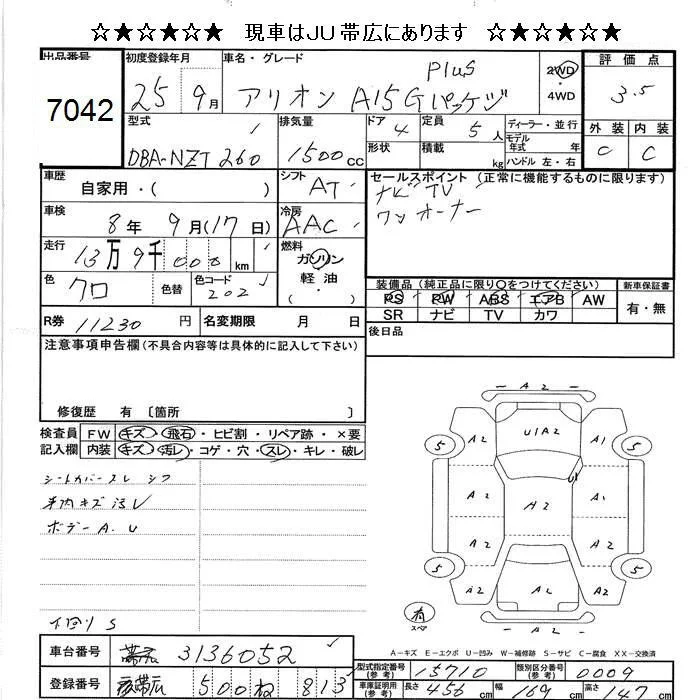 ☆★☆★☆★☆ 現車はJU帯広にあります ☆★☆★☆★☆
出品番号
7042
初度登録年月
25年 9月
車名・グレード
アリオン A15Gパッケジ Plus
2WD
・
4WD
評価点
3.5
外装 内装
C C
型式
DBA-NZT260
排気量
1500cc
ドア
4
形状
定員
5人
積載 kg
ディーラー・並行
モデル年式 年
ハンドル 左・右
車歴
自家用・( )
シフト
AT
セールスポイント(正常に機能するものに限ります)
ナビ TV
ワンオーナー
車検
8年 9月(17日)
冷房
AAC
走行
13万9千000km
燃料
ガソリン
軽油
( )
色
クロ
色替
色コード
202
装備品(純正品に限り〇をつけてください)
PS PW ABS エアB AW
SR ナビ TV カワ
新車保証書
有・無
R券 11230円
名変期限 月 日
後日品
注意事項申告欄(不具合内容等は具体的に記入して下さい)
修復歴 有 〔箇所 〕
検査員
記入欄
FW キズ・飛石・ヒビ割・リペア跡・×要
内装 キズ・汚レ・コゲ・穴・スレ・キレ・破レ
シートカバー スレ シワ
車内キズ汚レ
ボデーA.U
下回りS
A2
A2 U1A2 A1
5 5
U1
A2 A2 A1
A2 A2
5 5
A2 A2 A2
有
スペア
A2
A-キズ E-エクボ U-凹み W-補修跡 S-サビ C-腐食 XX-交換済
車台番号
3136052
登録番号
帯広 500 ね 813
型式指定番号
(参考)
15710
類別区分番号
(参考)
0009
車庫証明用
(参考)
長さ 456cm
幅 169cm
高さ 147cm